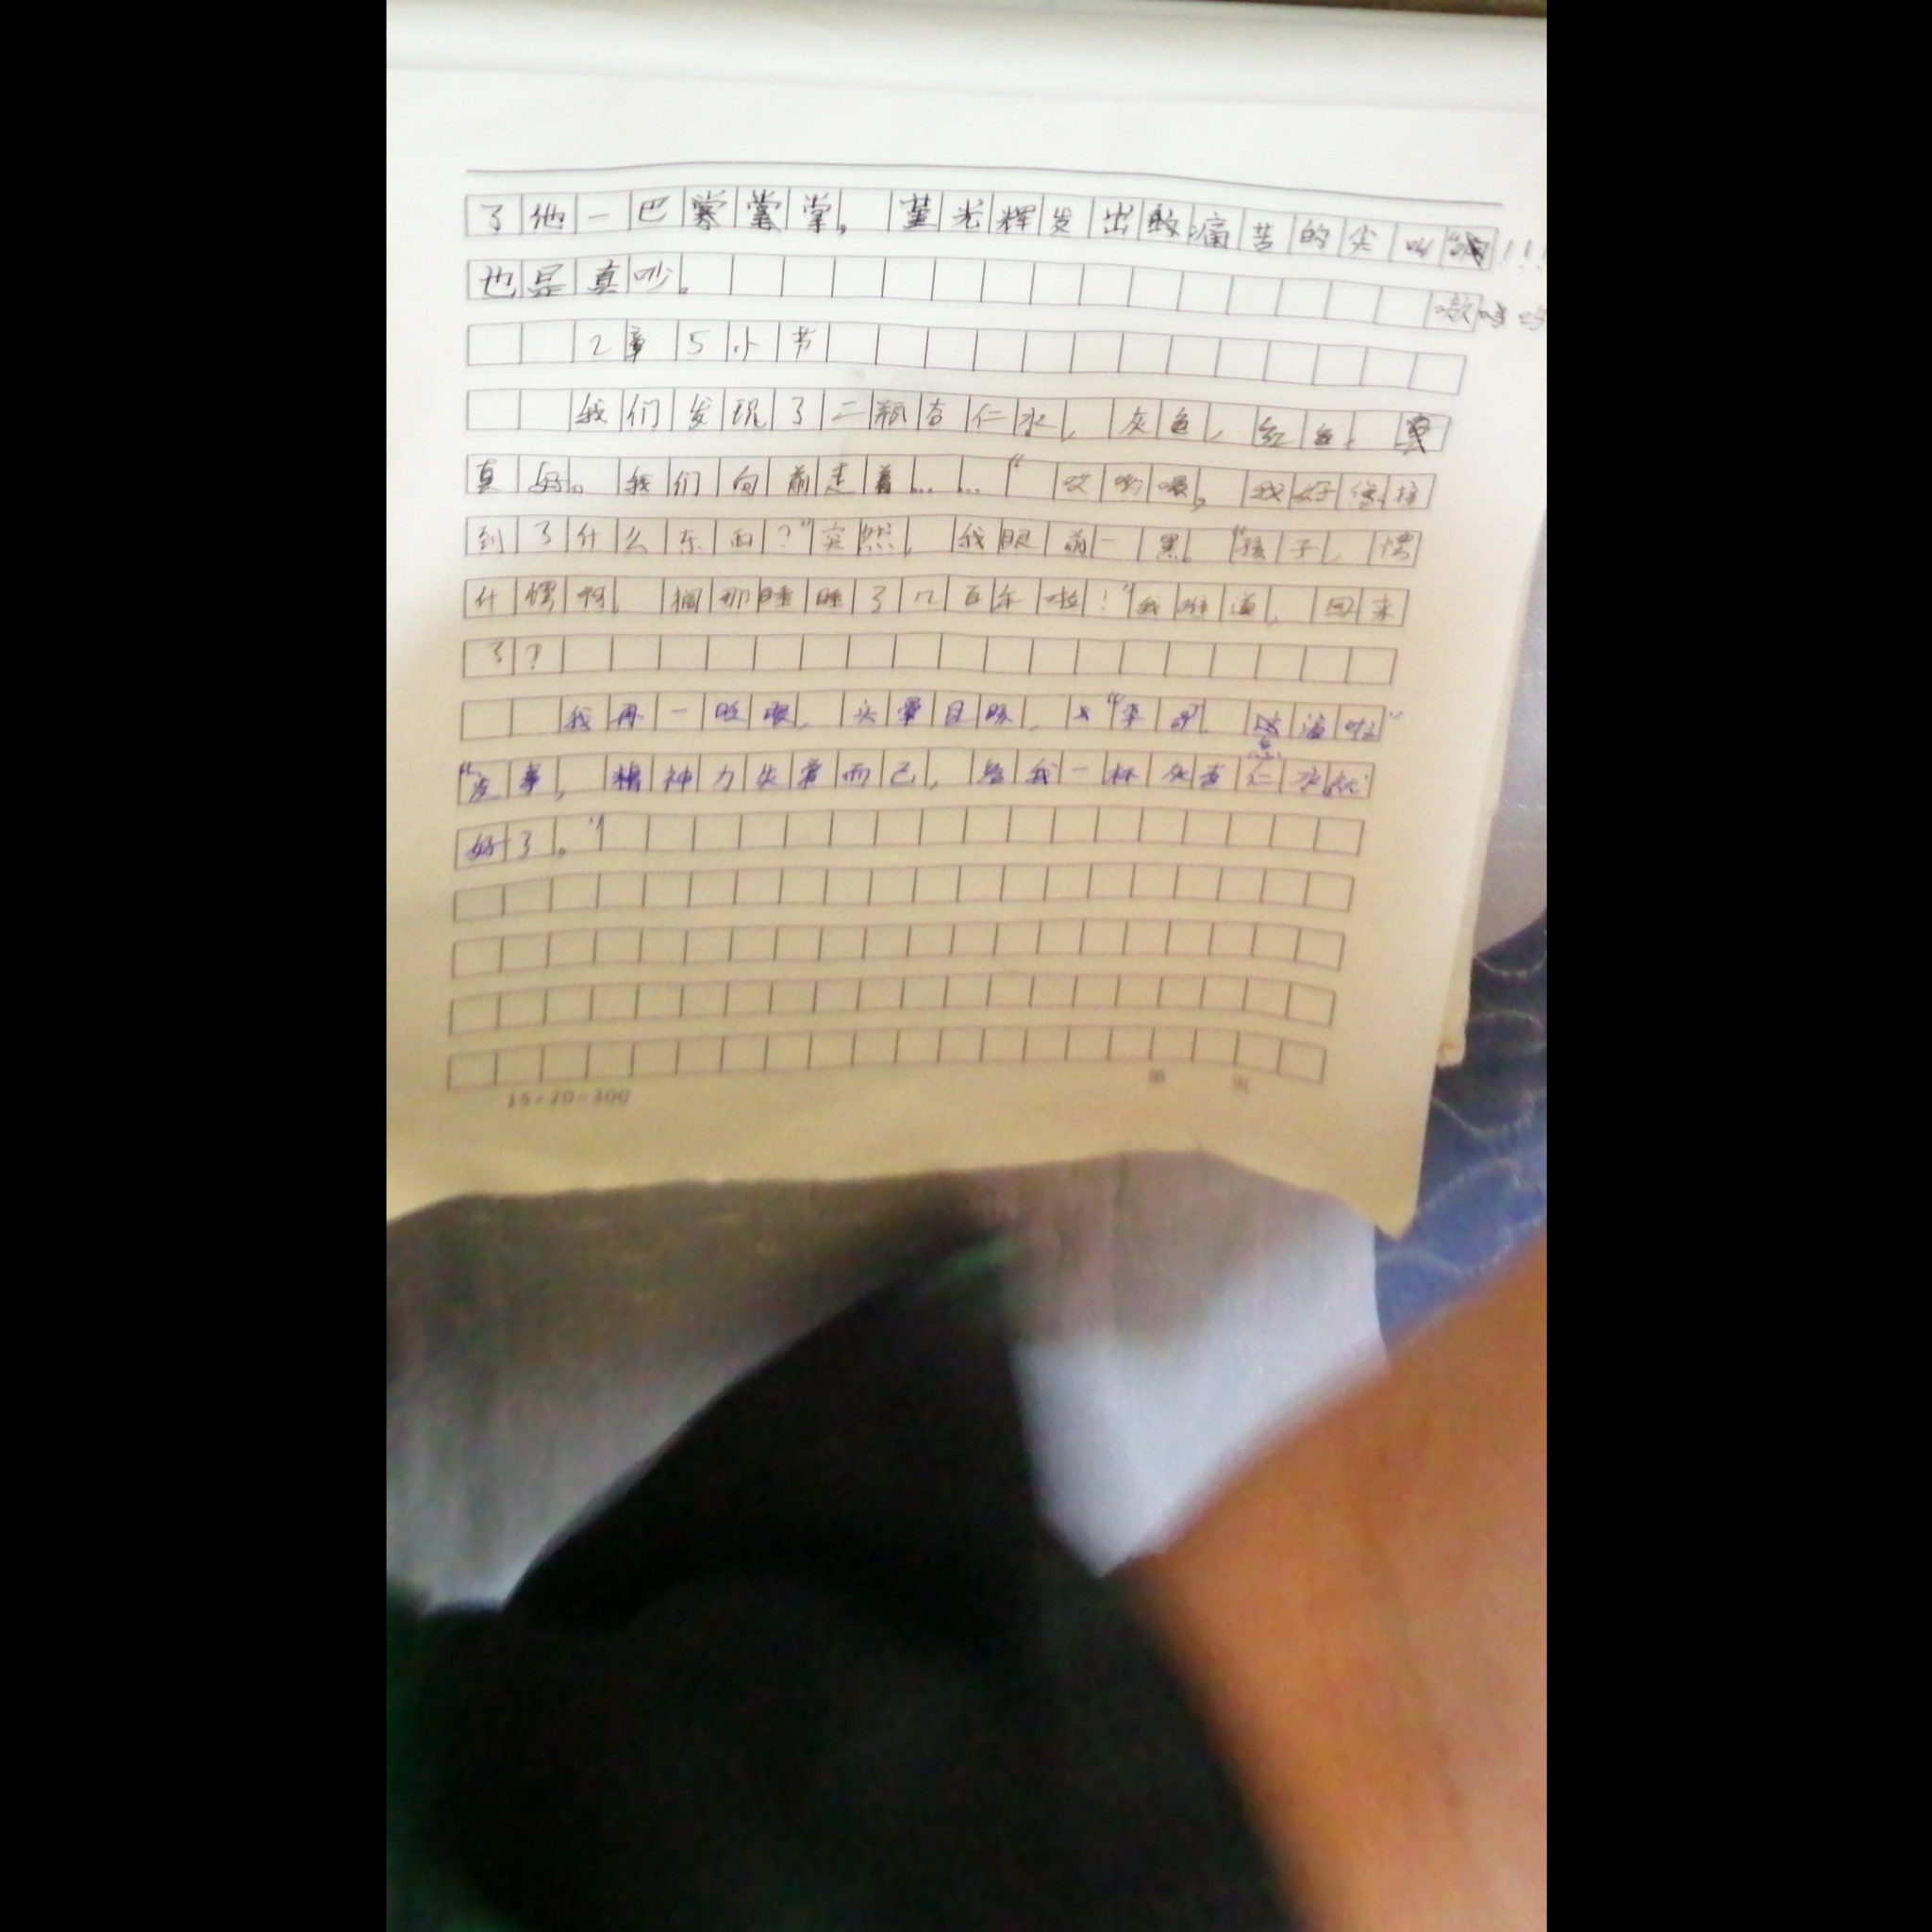 了他一巴掌,堇光辉发出痛苦的尖叫!!!
也是真吵。
嗷呜呜
2章5小节
我们发现了二瓶杏仁水,灰色,红色,
真好。我们向前走着……“哎哟喂,我好像撞
到了什么东西?”突然,我眼前一黑。“孩子,愣
什愣啊。搁那睡睡了几百年啦!”我难道,回来
了?
我再一睁眼,头晕目眩,
“没事,精神力失常而已,给我一杯灰杏仁水就
好了。”
15×20=300
第 页